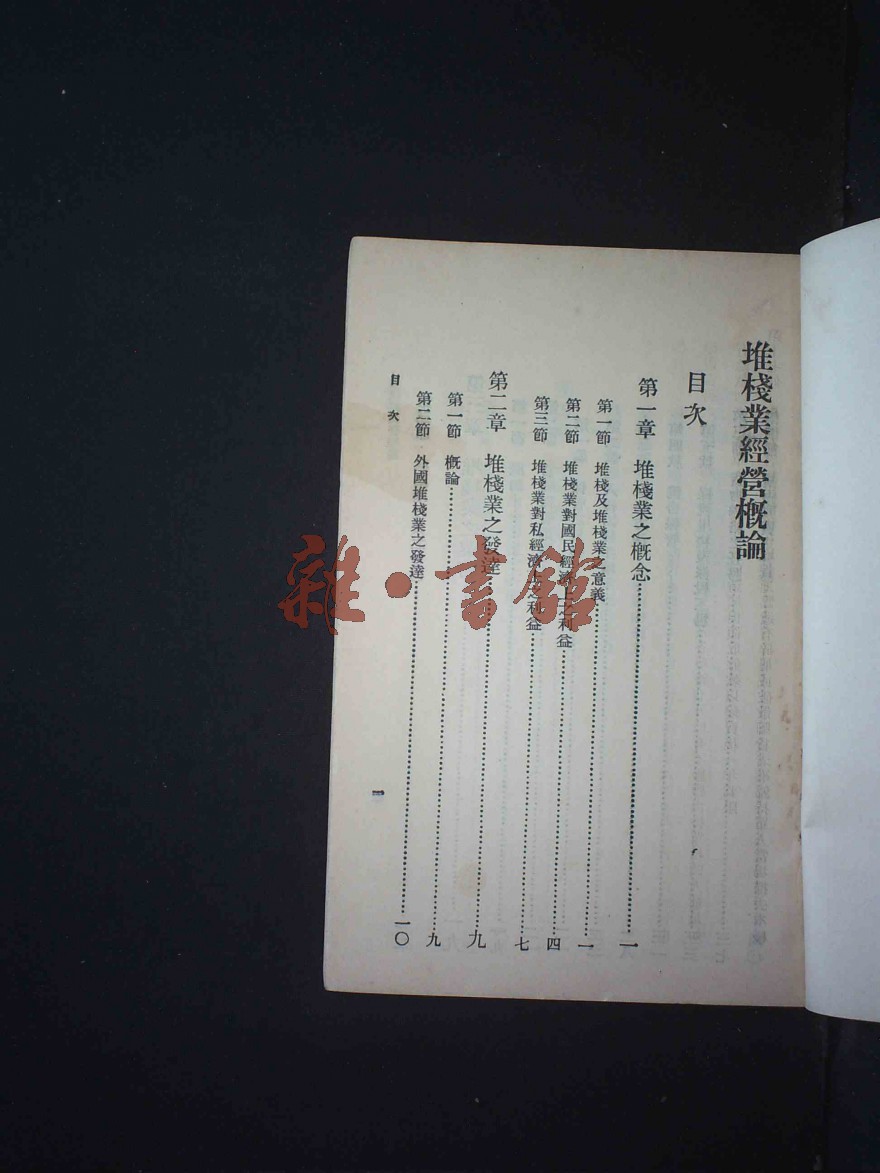 堆棧業經營概論
目次
第一章 堆棧業之概念……一
第一節 堆棧及堆棧業之意義……一
第二節 堆棧業對國民經濟上之利益……四
第三節 堆棧業對私經濟上之利益……七
第二章 堆棧業之發達……九
第一節 概論……九
第二節 外國堆棧業之發達……一〇
目次
雜·書館